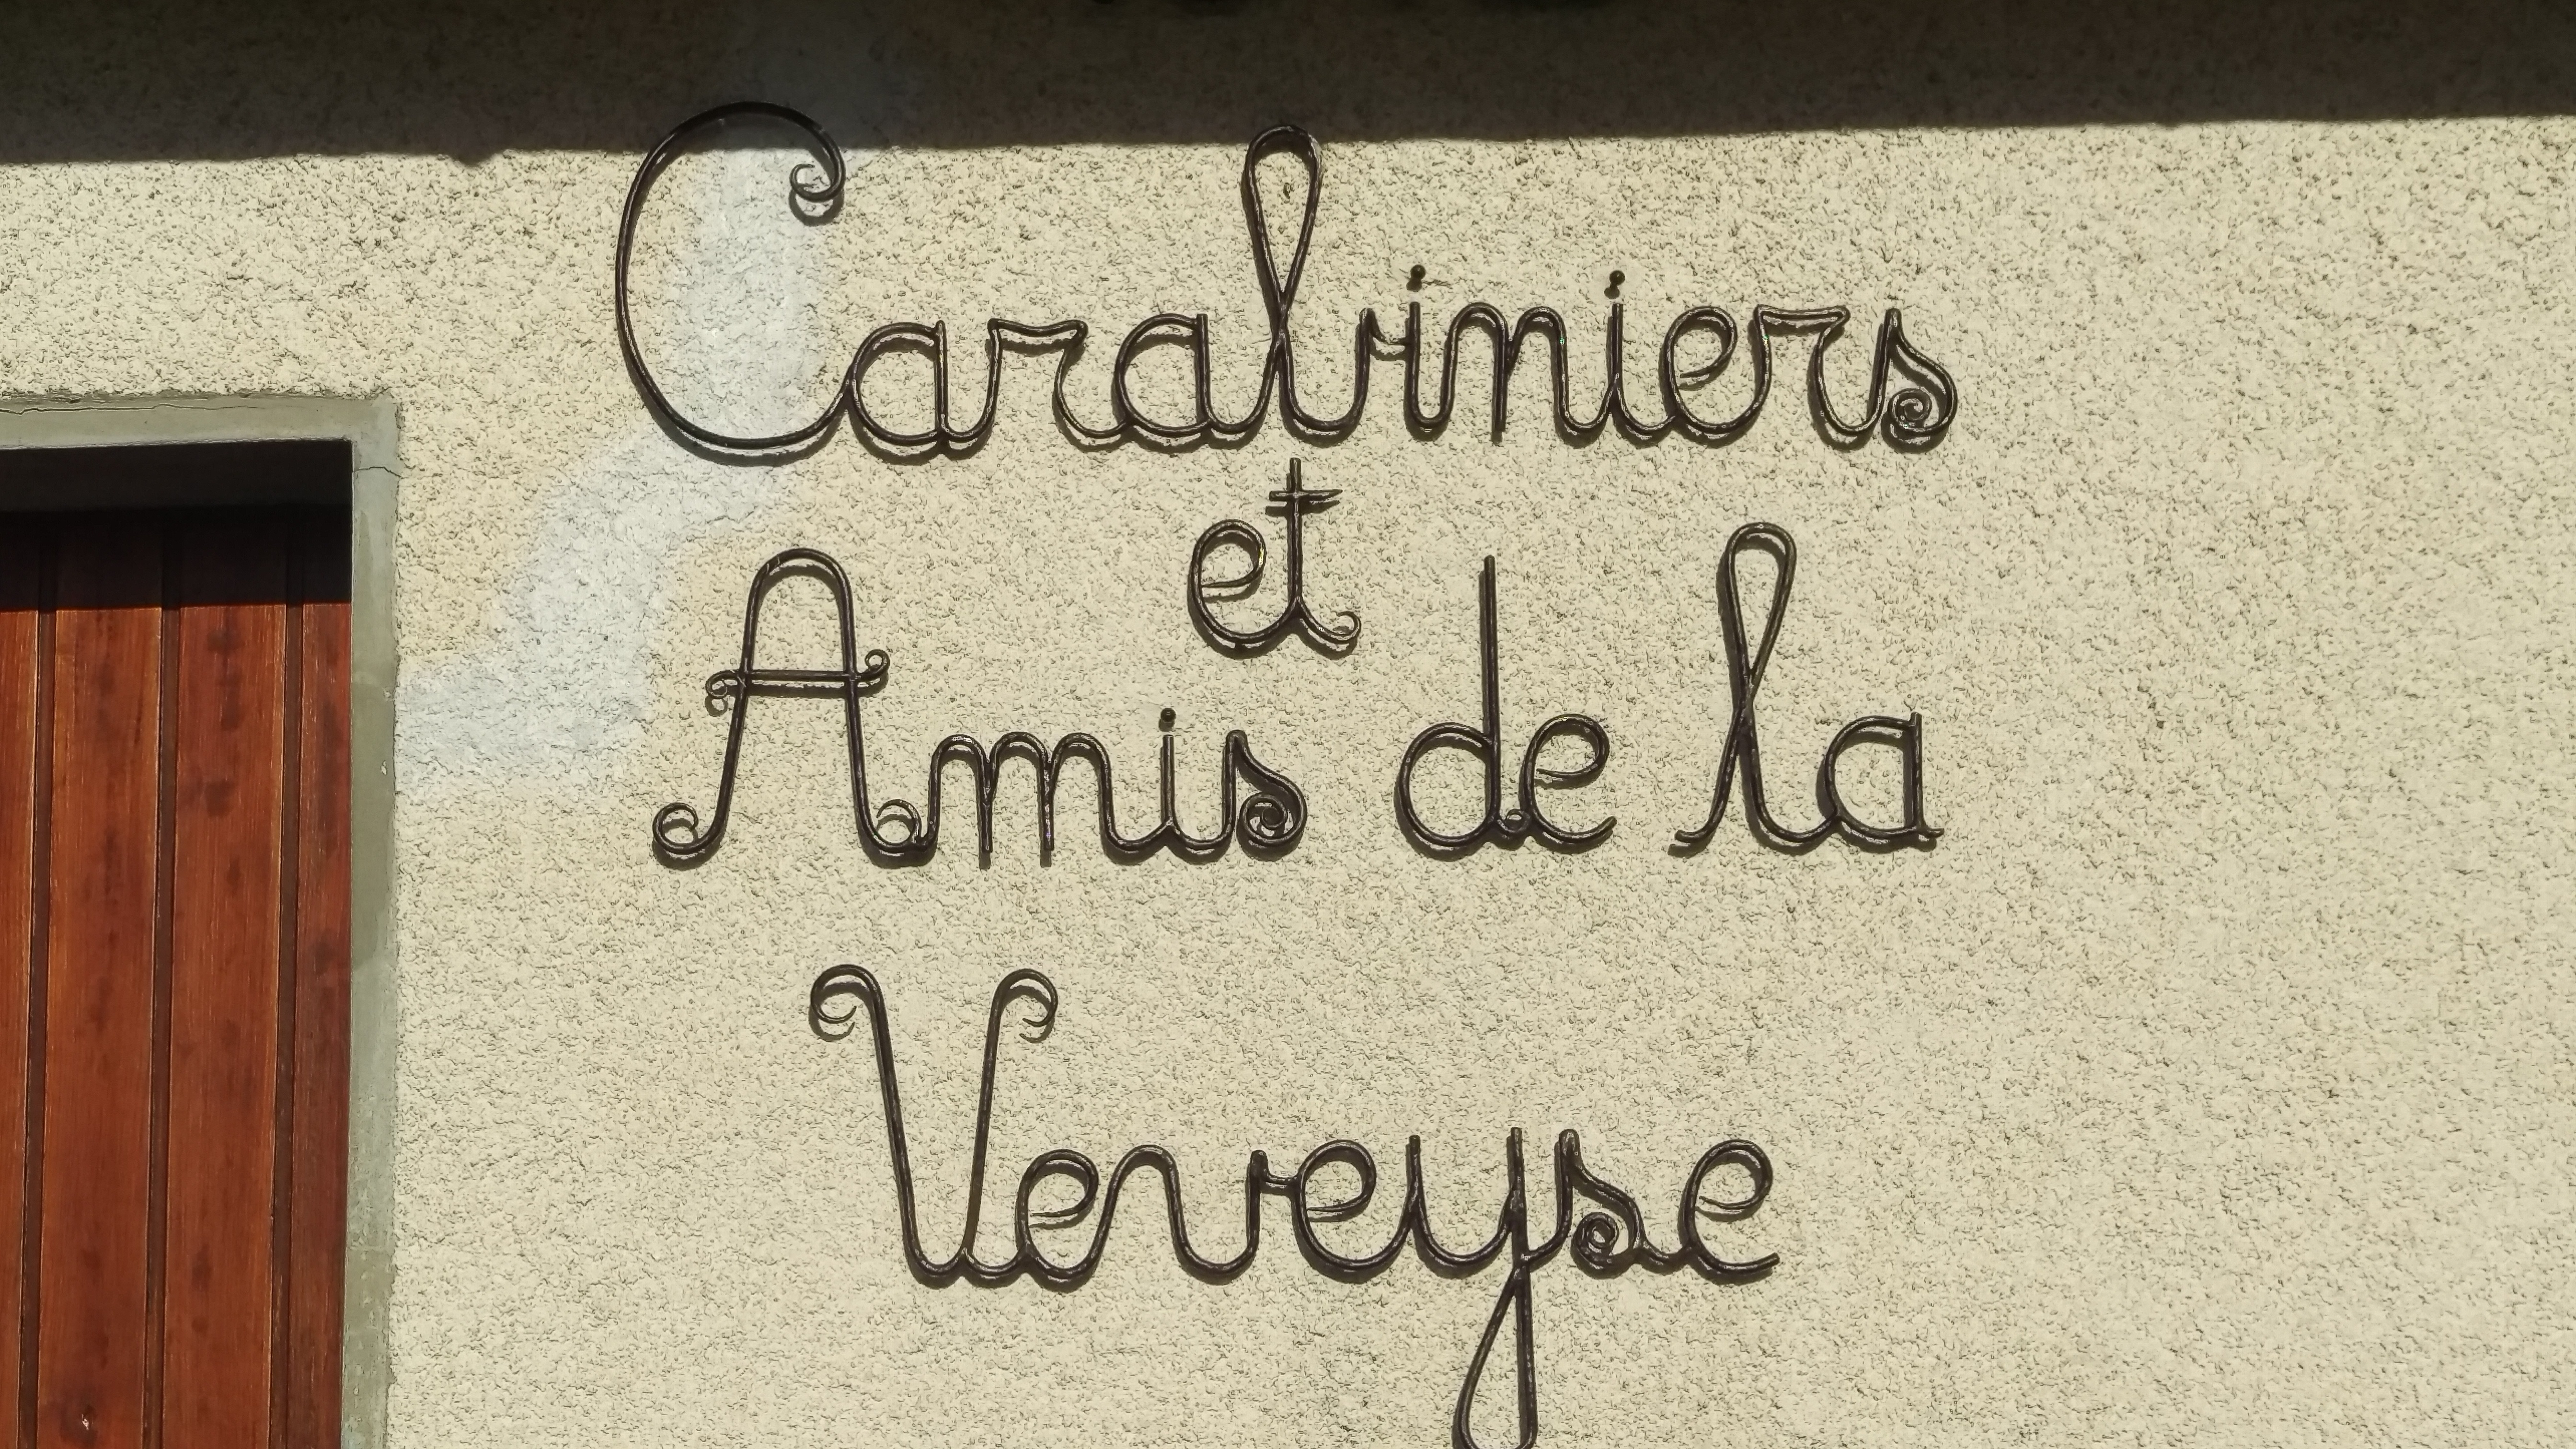 Carabiniers
et
Amis de la
Veveyse